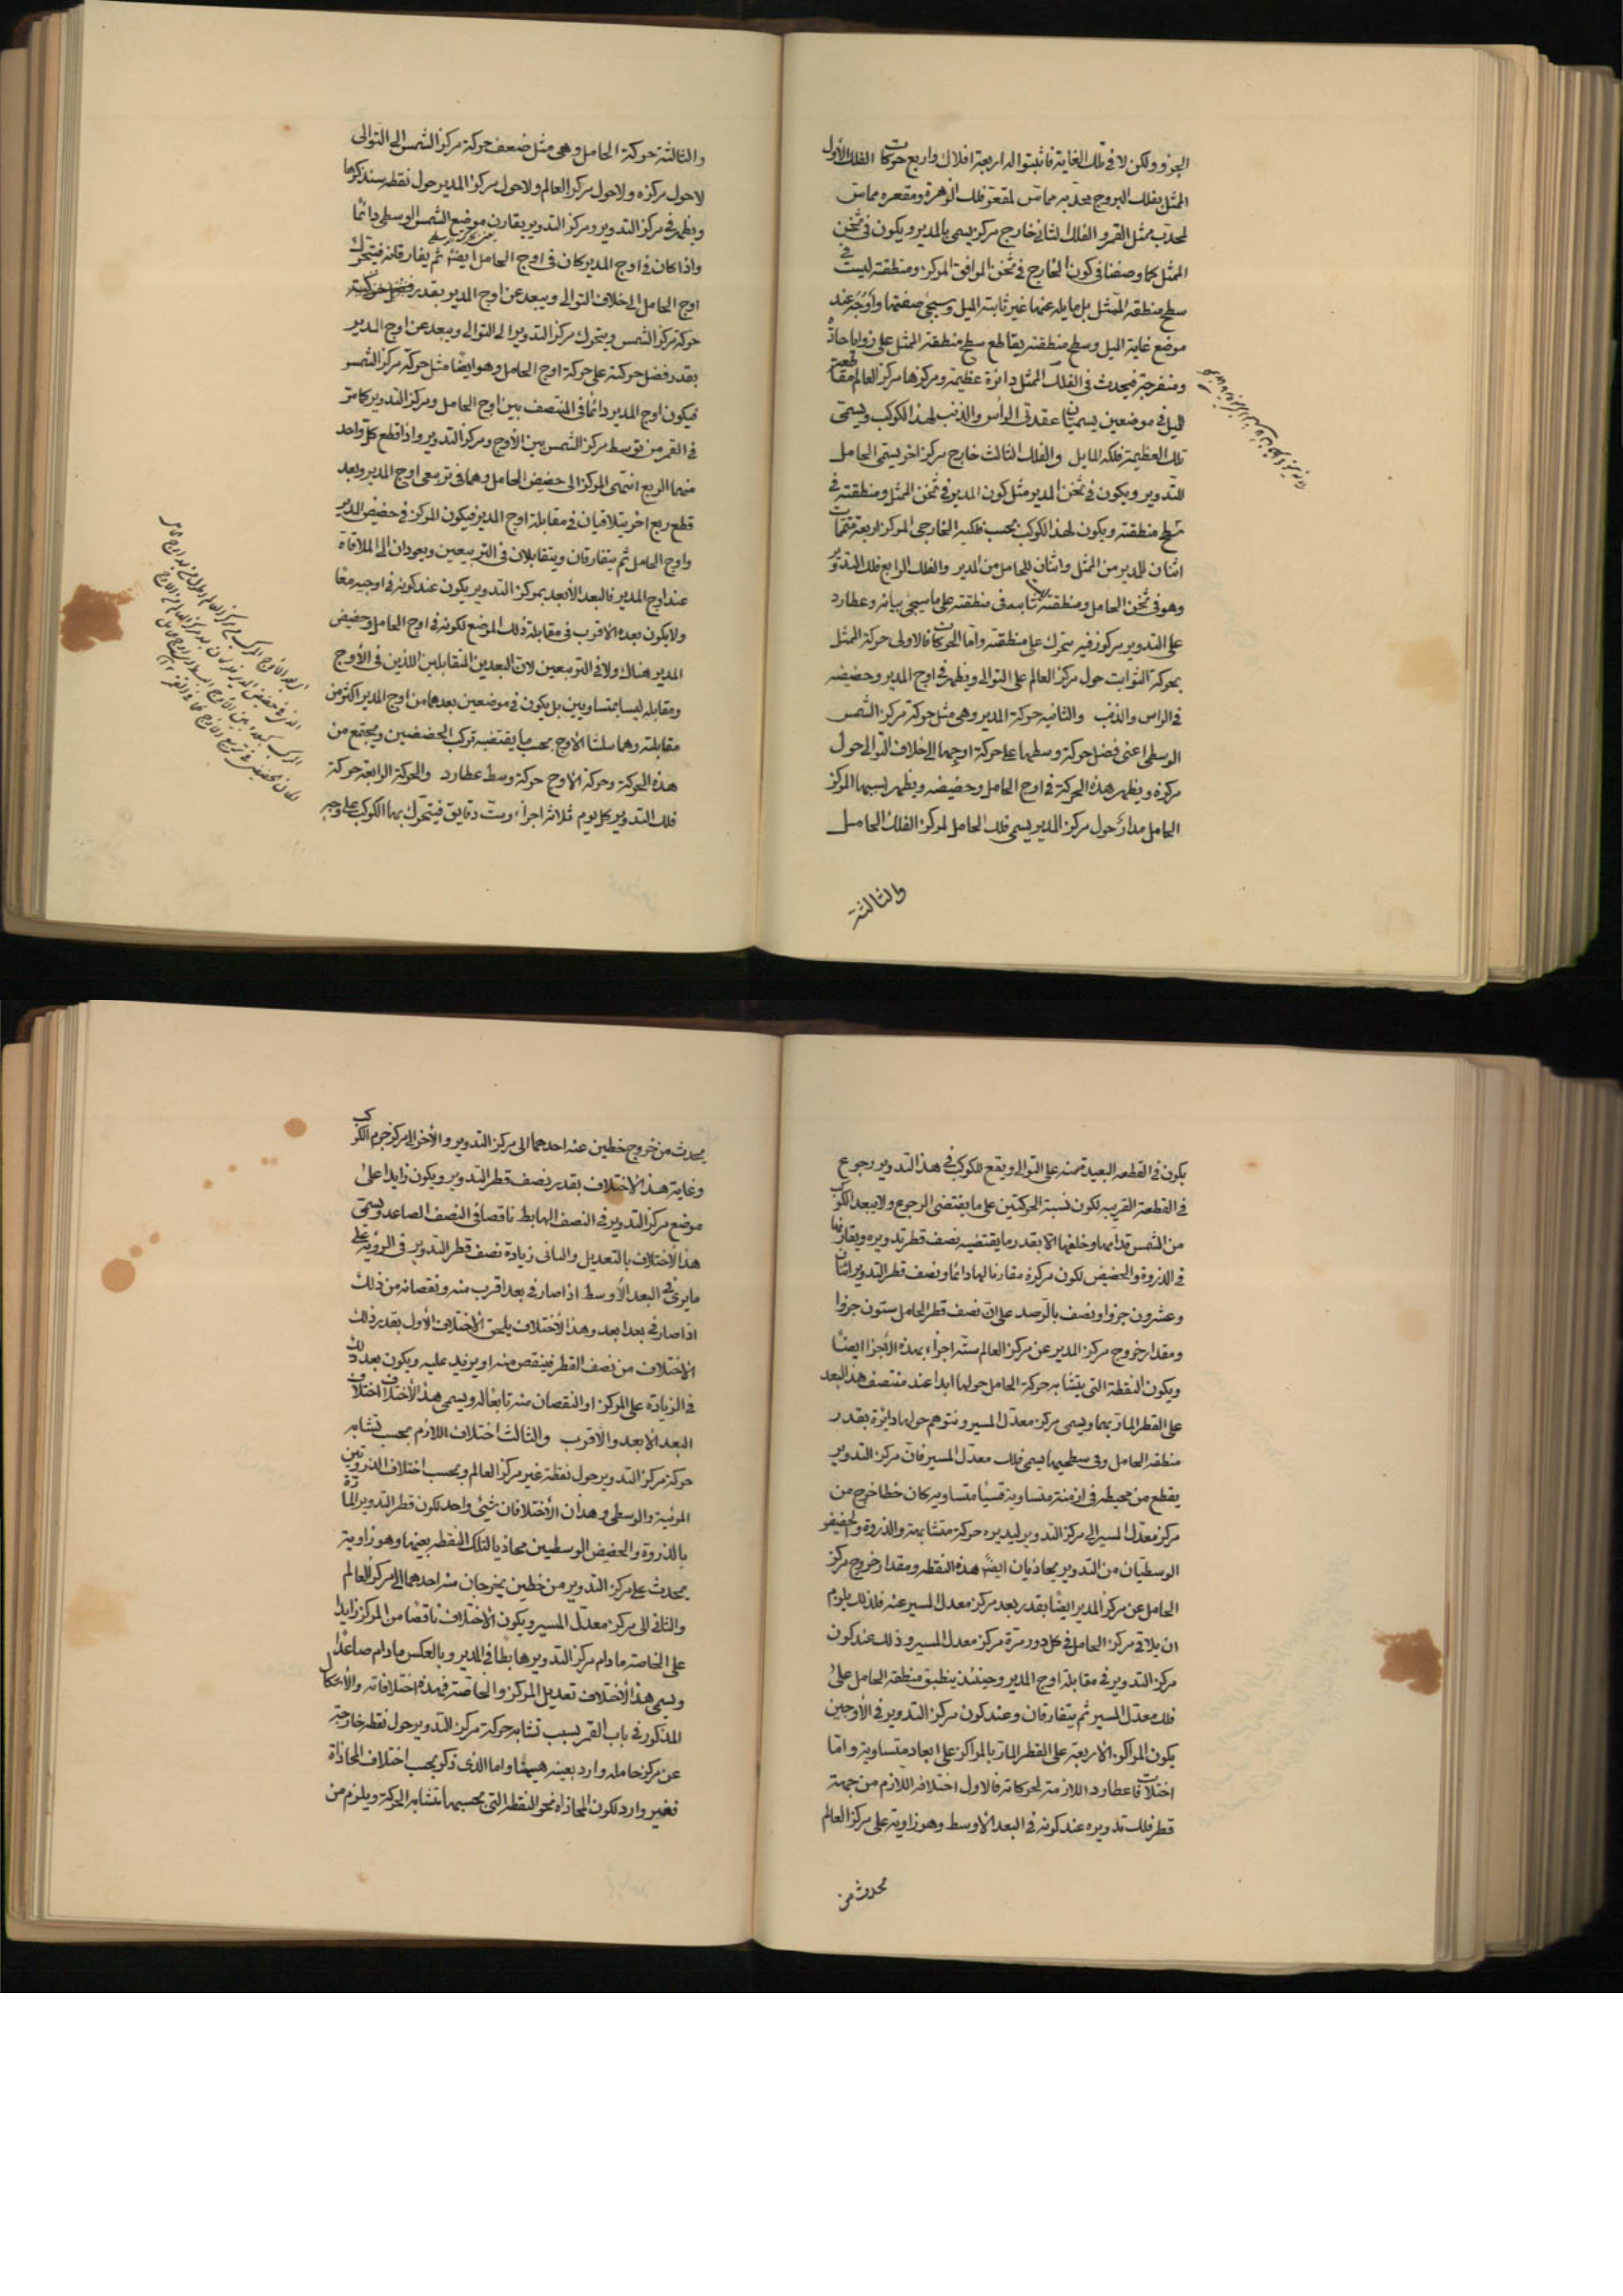 الجزو ولكن لا في تلك الغاية فاثبتوا له اربعة افلاك واربع حركات الفلك الأول
الممثل بفلك البروج محدّبه مماسّ لمقعّر فلك الزهرة ومقعره مماسّ
لمحدّب ممثل القمر والفلك الثاني خارج مركز يسمى بالمدير ويكون في ثخن
الممثل كما وصفنا في كون الخارج في ثخن الموافق المركز ومنطقته ليست في
سطح منطقة الممثل بل مايلة عنها غير ثابتة الميل وسيجئ صفتها وأوجه عند
موضع غاية الميل وسطح منطقته يقاطع سطح منطقة الممثل على زوايا حادّة
ومنفرجة فيحدث في الفلك الممثل دائرة عظيمة ومركزها مركز العالم مقاطعة
للميل في موضعين يسميان عقدتي الرأس والذنب لهذا الكوكب ويسمّى
تلك العظيمة فلكه المايل والفلك الثالث خارج مركز اخر يسمّى الحامل
للتدوير ويكون في ثخن المدير مثل كون المدير في ثخن الممثل ومنطقته في
سطح منطقته ويكون لهذا الكوكب بحسب فلكيه الخارجي المركز اربعة متممات
اثنان للمدير من الممثل واثنان للحامل من المدير والفلك الرابع فلك التدوير
وهو في ثخن الحامل ومنطقته ثابتة في منطقته على ما سيجئ بيانه وعطارد
على التدوير مركوز فيه يتحرك على منطقته وامّا الحركات فالاولى حركة الممثل
بحركة الثوابت حول مركز العالم على التوالي ويظهر في اوج المدير وحضيضه
في الراس والذنب والثانية حركة المدير وهي مثل حركة مركز الشمس
الوسطى اعني فضل حركة وسطها على حركة اوجها الى خلاف التوالي حول
مركزه ويظهر هذه الحركة في اوج الحامل وحضيضه ويظهر بسببها لمركز
الحامل مدار حول مركز المدير يسمى فلك الحامل لمركز الفلك الحامل
والثالثة
والثالثة حركة الحامل وهي مثل ضعف حركة مركز الشمس الى التوالى
لاحول مركزه ولاحول مركز العالم ولاحول مركز المدير حول نقطة سنذكرها
ويظهر في مركز التدوير ومركز التدوير يقارن موضع الشمس الوسطى دائمًا
واذا كان في اوج المدير كان في اوج الحامل ايضًا ثم يفارقانه فيتحرك
اوج الحامل الى خلاف التوالي ويبعد عن اوج المدير بقدر فضل حركته
حركة مركز الشمس ويتحرك مركز التدوير الى التوالي ويبعد عن اوج المدير
بقدر فضل حركته على حركة اوج الحامل وهو ايضًا مثل حركة مركز الشمس
فيكون اوج المدير دائمًا في المنتصف بين اوج الحامل ومركز التدوير كما مرّ
في القمر من توسط مركز الشمس بين الأوج ومركز التدوير واذا قطع كل واحد
منهما الربع انتهى المركز الى حضيض الحامل وهما في تربيعي اوج المدير وبعد
قطع ربع اخر يتلاقيان في مقابلة اوج المدير فيكون المركز في حضيض المدير
واوج الحامل ثم يتفارقان ويتقابلان في التربيعين ويعودان الى الملاقاة
عند اوج المدير فالبعد الأبعد بمركز التدوير يكون عند كونه في اوجيه معًا
ولا يكون بعده الاقرب في مقابلة ذلك الموضع لكونه في اوج الحامل وحضيض
المدير هناك ولا في التربيعين لان البعدين المتقابلين اللذين في الأوج
ومقابله ليسا بمتساويين بل يكون في موضعين بعدهما من اوج المدير اكثر من
مقابلته وهما مثلثا الأوج بحسب ما يقتضيه تركب الحضيضين ويجتمع من
هذه الحركة وحركة الاوج حركة وسط عطارد والحركة الرابعة حركة
فلك التدوير كل يوم ثلاثة اجزاء وست دقايق فيتحرك بها الكوكب على وجه
يكون في القطعة البعيدة منه على التوالي ويقع للكوكب في هذا التدوير رجوع
في القطعة القريبة لكون نسبة الحركتين على ما يقتضى الرجوع ولا يبعد الكوكب
من الشمس قدامها وخلفها الا بقدر ما يقتضيه نصف قطر تدويره ويقارنها
في الذروة والحضيض لكون مركزه مقارنا لها دائما ونصف قطر التدوير اثنان
وعشرون جزوا ونصف بالرصد على ان نصف قطر الحامل ستون جزوا
ومقدار خروج مركز المدير عن مركز العالم ستة اجزاء بهذه الأجزا ايضًا
ويكون النقطة التي يتشابه حركة الحامل حولها ابدا عند منتصف هذا البعد
على القطر المارّ بهما ويسمى مركز معدّل المسير ونتوهم حولها دائرة بقدر
منطقة الحامل وفي سطحها يسمى فلك معدّل المسير فان مركز التدوير
يقطع من محيطه في ازمنة متساوية قسيًا متساوية كان خطا خرج من
مركز معدّل المسير الى مركز التدوير ليديره حركة متشابهة والذروة والحضيض
الوسطيان من التدوير يحاذيان ايضًا هذه النقطة ومقدار خروج مركز
الحامل عن مركز المدير ايضًا بقدر بعد مركز معدل المسير عنه فلذلك يلزم
ان يلاقى مركز الحامل في كل دور مرّة مركز معدل المسير وذلك عند كون
مركز التدوير في مقابلة اوج المدير وحينئذ ينطبق منطقة الحامل على
فلك معدّل المسير ثم يتفارقان وعند كون مركز التدوير في الأوجين
يكون المراكز الأربعة على القطر المارّ بالمراكز على ابعاد متساوية وامّا
اختلافات عطارد اللازمة لحركاته فالاول اختلافه اللازم من جهة
قطر فلك تدويره عند كونه في البعد الأوسط وهو زاوية على مركز العالم
يحدث من
يحدث من خروج خطين عنه احدهما الى مركز التدوير والأخر الى مركز جرم الكوكب
وغاية هذا الاختلاف بقدر نصف قطر التدوير ويكون زايدا على
موضع مركز التدوير في النصف الهابط ناقصا في النصف الصاعد ويسمّى
هذا الأختلاف بالتعديل والثاني زيادة نصف قطر التدوير في الرؤية على
ما يرى في البعد الأوسط اذا صار في بعد اقرب منه ونقصانه من ذلك
اذا صار في بعد ابعد وهذا الأختلاف يلحق الأختلاف الأول بقدر ذلك
الاختلاف من نصف القطر فينقص منه او يزيد عليه ويكون بعد ذلك
في الزيادة على المركز او النقصان منه تابعًا له ويسمى هذا الأختلاف اختلاف
البعد الابعد والاقرب والثالث اختلاف اللازم بحسب تشابه
حركة مركز التدوير حول نقطة غير مركز العالم وبحسب اختلاف الذروتين
المرئية والوسطى وهذان الأختلافان شئ واحد لكون قطر التدوير المارّة
بالذروة والحضيض الوسطيين محاذيا لتلك النقطة بعينها وهو زاوية
يحدث على مركز التدوير من خطين يخرجان منه احدهما الى مركز العالم
والثاني الى مركز معدّل المسير ويكون الأختلاف ناقصًا من المركز زايدا
على الخاصة ما دام مركز التدوير هابطا في المدير وبالعكس ما دام صاعدًا
ويسمى هذا الأختلاف تعديل المركز والخاصة فهذه اختلافاته والأشكال
المذكور في باب القمر بسبب تشابه حركة مركز التدوير حول نقطة خارجة
عن مركز حامله وارد بعينه هيهنا واما الذي ذكر بحسب اختلاف المحاذاة
فغير وارد لكون المحاذاة نحو النقطة التي بحسبها تتشابه الحركة ويلزم من